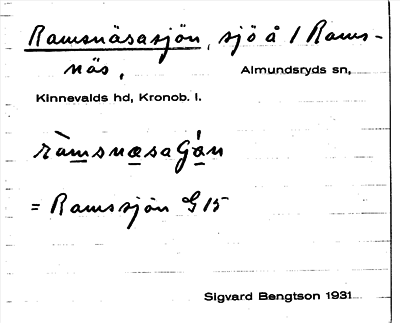 Ramsnäsasjön, sjö å 1 Rams-
näs, Almundsryds sn,
Kinnevalds hd, Kronob. l.
ràmsnæsaʃǿn
= Ramssjön G 15
Sigvard Bengtson 1931